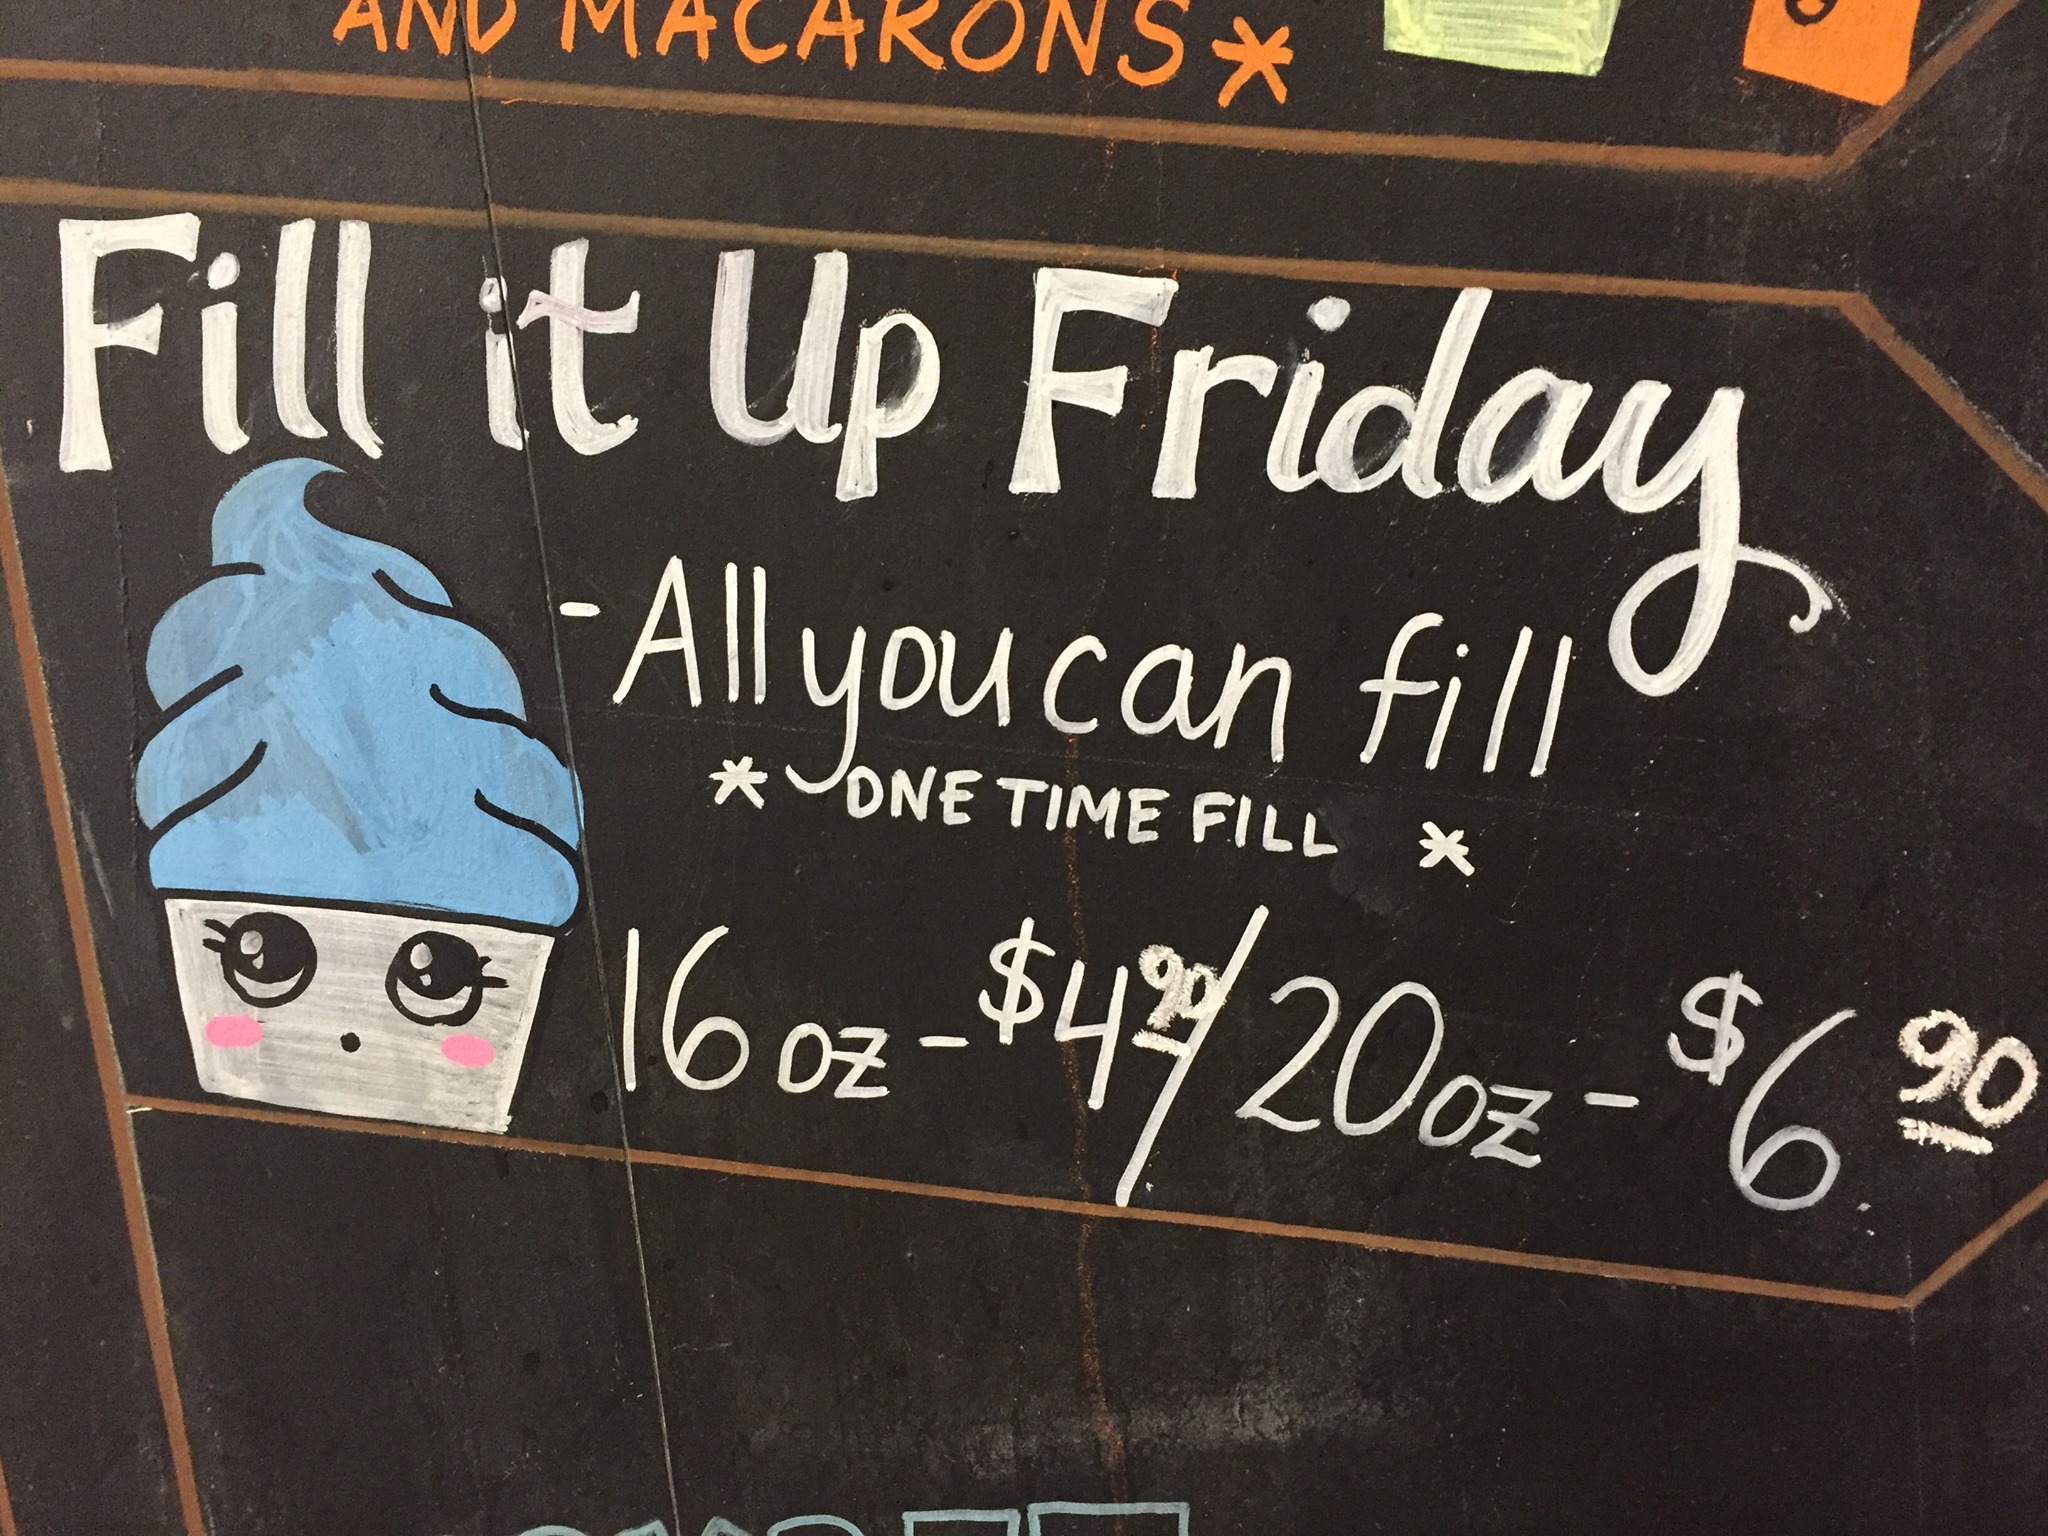 AND MACARONS*
Fill it Up Friday
- All you can fill
* ONE TIME FILL *
16 oz - $4 90 / 20 oz - $6 90